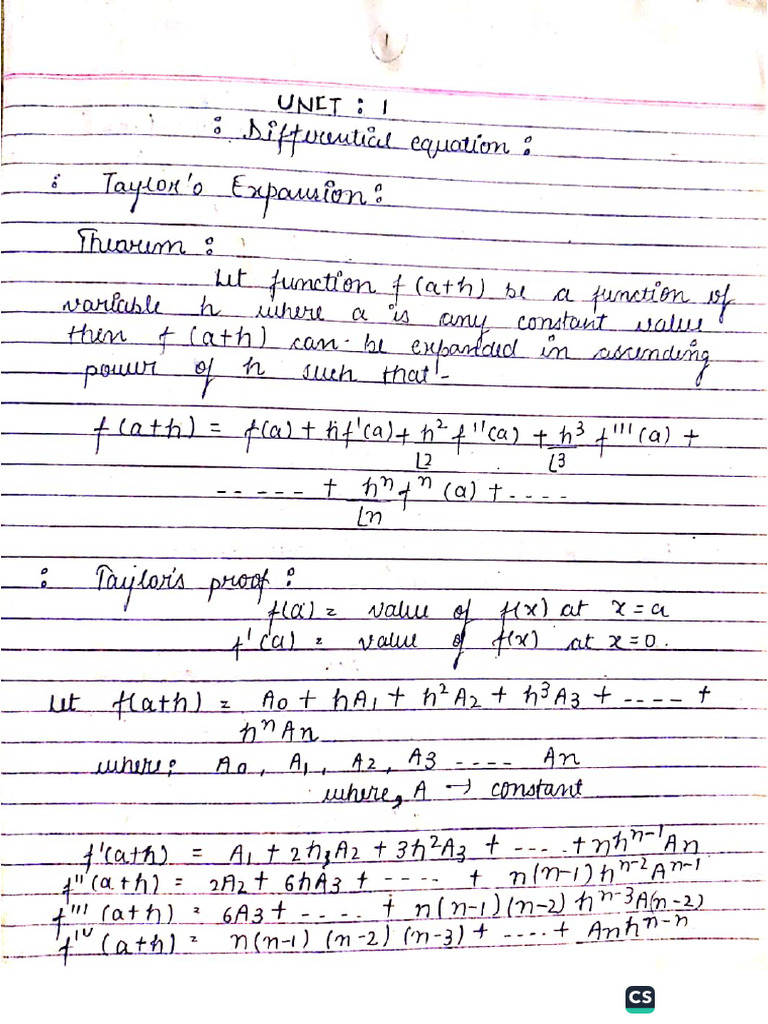 1
UNIT : 1
: Differential equation :
: Taylor's Expansion :
Thearum :
Let function f(a+h) be a function of
variable h where a is any constant value
then f(a+h) can be expanded in ascending
power of h such that -
f(a+h) = f(a) + hf'(a) + h² f''(a) + h³ f'''(a) +
⌊2 ⌊3
----- + hⁿ fⁿ(a) + ----
⌊n
: Taylor's proof :
f(a) = value of f(x) at x = a
f'(a) = value of f(x) at x = 0.
Let f(a+h) = A0 + hA1 + h²A2 + h³A3 + ---- +
hⁿAn
where; A0, A1, A2, A3 ---- An
where, A → constant
f'(a+h) = A1 + 2h,A2 + 3h²A3 + ---- + nhⁿ⁻¹An
f''(a+h) = 2A2 + 6hA3 + ---- + n(n-1)hⁿ⁻²Aⁿ⁻¹
f'''(a+h) = 6A3 + ---- + n(n-1)(n-2)hⁿ⁻³A(n-2)
fᴵⱽ(a+h) = n(n-1)(n-2)(n-3) + ---- + Anhⁿ⁻ⁿ
CS